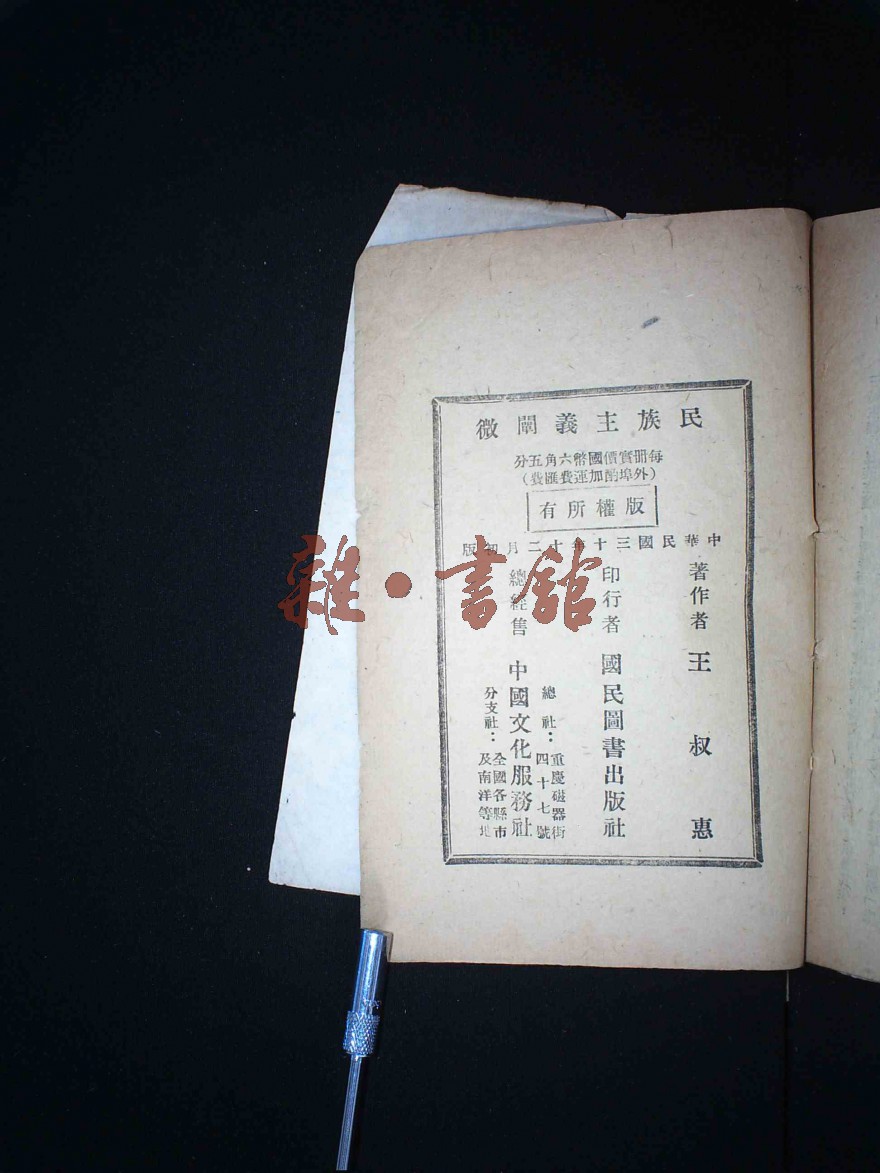 民族主義闡微
每冊實價國幣六角五分
(外埠酌加運費匯費)
版權所有
中華民國三十年十二月初版
著作者 王叔惠
印行者 國民圖書出版社
總經售 中國文化服務社
總社：重慶磁器街四十七號
分支社：全國各縣市及南洋等地
雜·書館